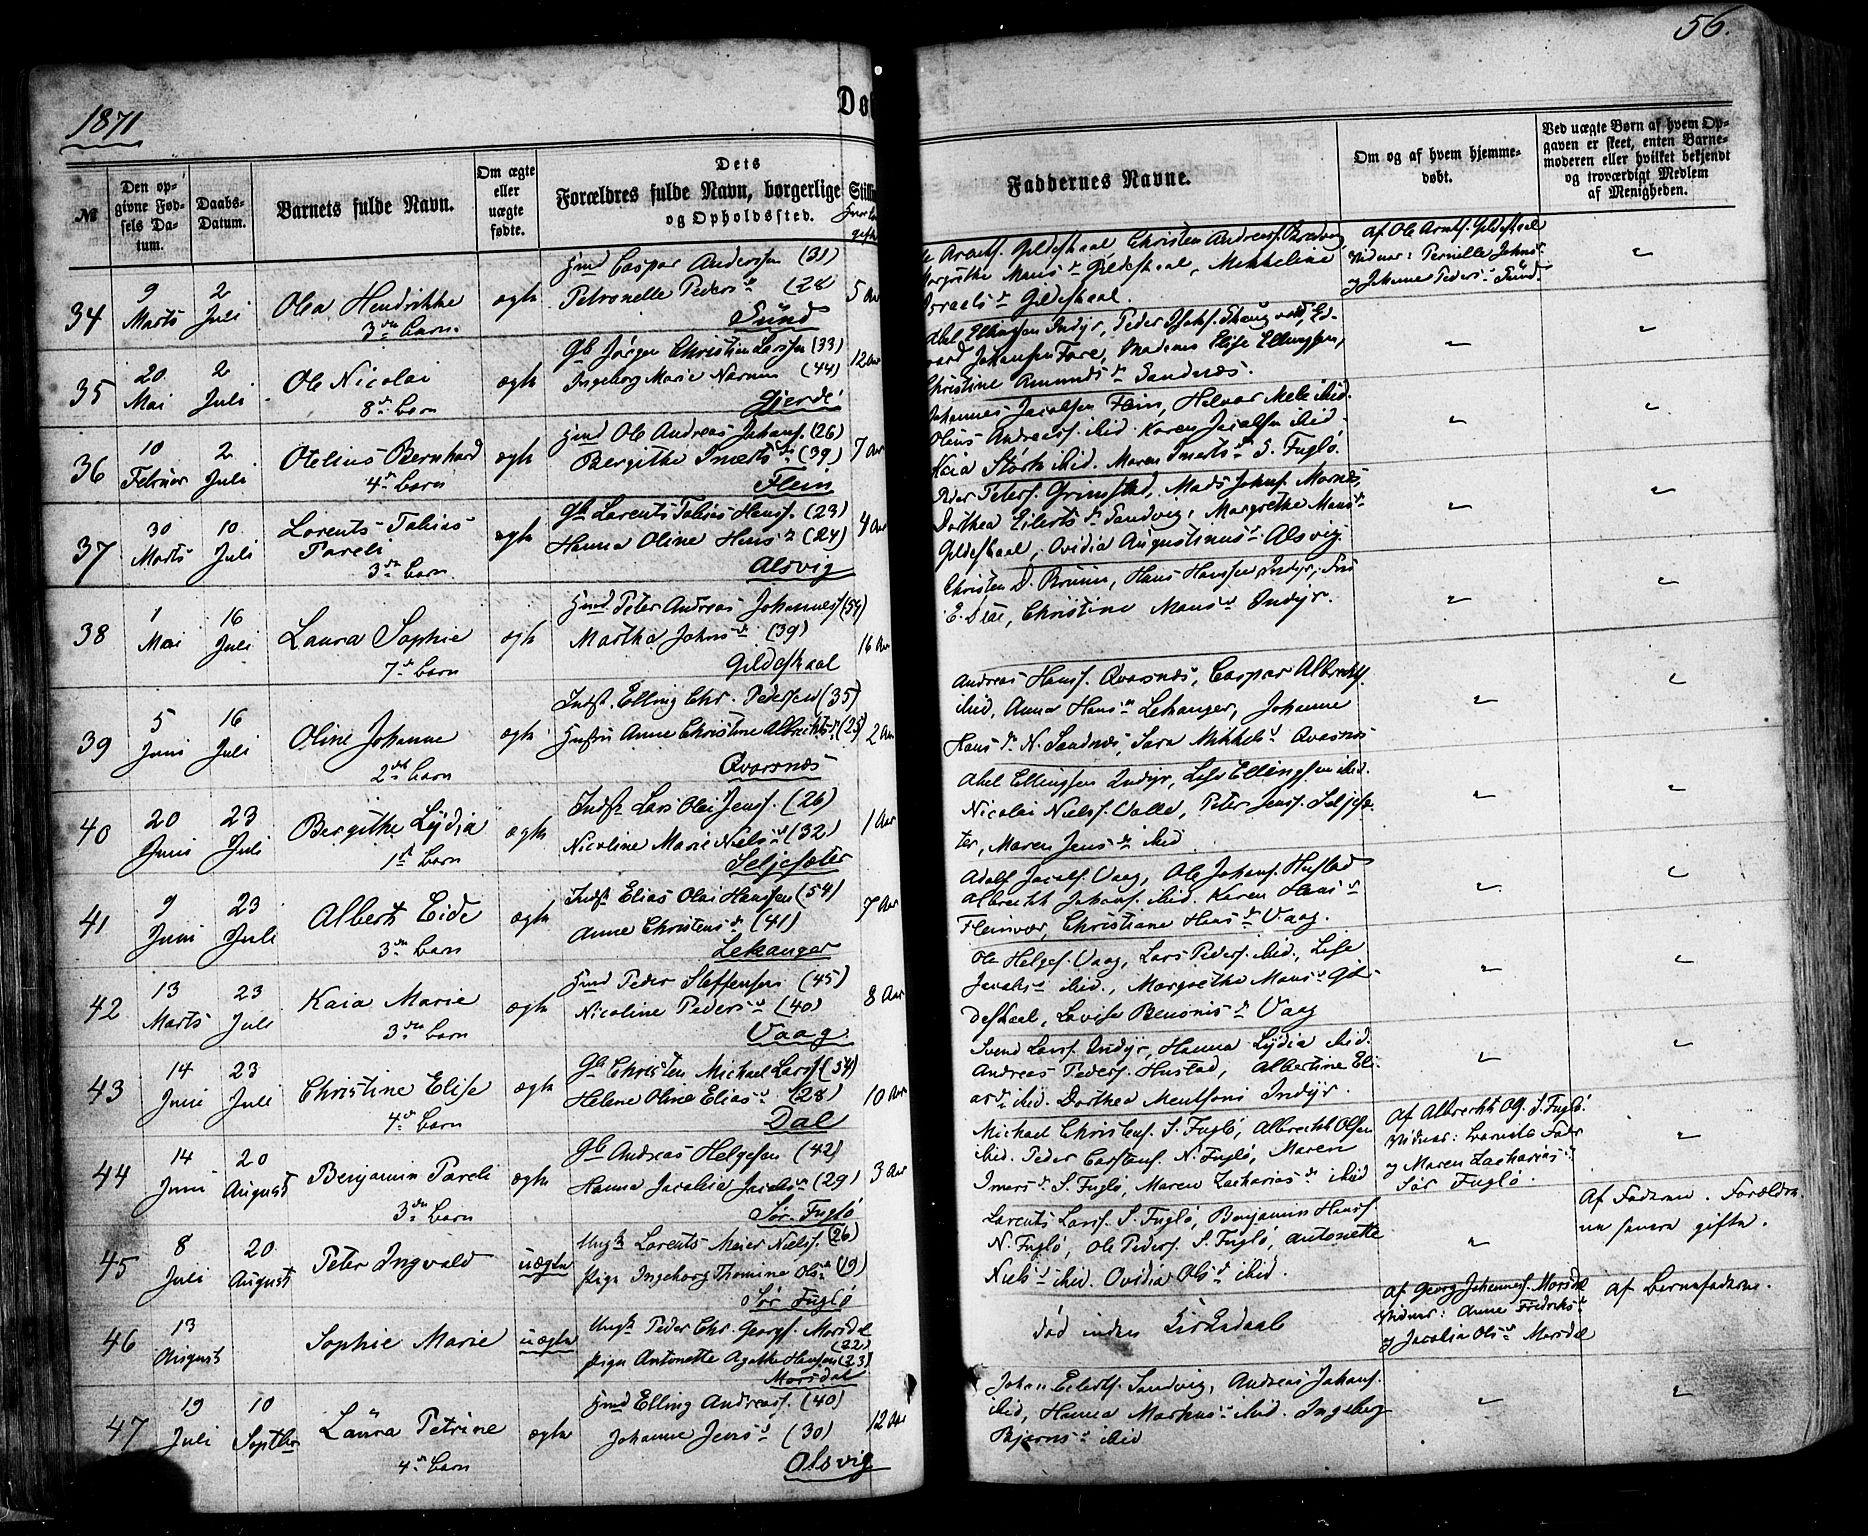 56.
1871
Døb
№
Den opgivne Fødsels Datum.
Daabs-Datum.
Barnets fulde Navn.
Om ægte eller uægte fødte.
Dets Forældres fulde Navn, borgerlige Still
og Opholdssted.
Faddernes Navne.
Om og af hvem hjemmedøbt.
Ved uægte Børn af hvem Opgaven er skeet, enten Barnemoderen eller hvilket bekjendt og troværdigt Medlem af Menigheden.
34
9 Marts
2 Juli
Olea Hendrikke
3die barn.
ægte
Gmd Caspar Andersen (31)
Petronelle Pedersd (28
Sund
5 Aar
Arntf. Gildeskaal Christen Andreasf.
Margrethe Mansd Gildeskaal, Mikkeline
Israelsd Gildeskaal.
af Ole Arntf. Gildeskaal
Vidner: Pernille Johns
og Johanne Pedersd Sund.
"
35
20 Mai
2 Juli
Ole Nicolai
8de barn
ægte
Gb Jørgen Christian Larsen (33)
Ingeborg Marie (44)
Gjerde
12 Aar
Abel Ellingsen Indyr, Peder Johs.
Johansen Fore, Madame Elise Ellingsen,
Christine Amundsd Sandnæs.
"
"
36
10 Februar
2 Juli
Otelius Bernhard
4de barn
ægte
Gmd Ole Andreas Johans. (26)
Bergithe Imertsd (39)
Flein
7 Aar
Johannes Jacobsen Flein, Helvor Mele ibid.
Olius Andreasf. ibid. Karen Jacobsen ibid.
Kaia Störk ibid. Maren Imertsd S. Fuglö.
"
"
37
30 Marts
10 Juli
Lorents Tobias
Pareli
3die barn.
ægte
Gb Lorents Tobias Hansf. (23)
Hanna Oline Hansd (24)
Alsvig
4 Aar
Peder Petersf. Grimstad, Mads Johnf. Mornes,
Dorthea Eilertsd Sandvig, Margrethe Mansd
Gildeskaal, Ovidia Augustinusd Alsvig.
"
"
38
1 Mai
16 Juli
Laura Sophie
7de barn
ægte
Gmd Peter Andreas Johannesf (54)
Martha Johnsd (39)
Gildeskaal
16 Aar
Christen D. Bruun, Hans Hansen Indyr, Fru
E. Dias, Christine Mansd Indyr.
"
"
39
5 Juni
16 Juli
Oline Johanne
2det barn
ægte
Indst. Elling Chr. Pedersen (35)
Hustru Anne Christine Albrektsd (25)
Qvarsnæs
2 Aar
Andreas Hansf. Qvarsnæs, Caspar Albrektsf.
ibid, Anna Hansd Lekanger, Johanne
Hansd N. Sandnæs, Sara Mikkelsd Qvarsnæs
"
"
40
20 Juni
23 Juli
Bergithe Lydia
1st barn
ægte
Indst Lars Olai Jensf. (26)
Nicoline Marie Nielsd (32)
Seljesæter
1 Aar
Abel Ellingsen Indyr, Lise Ellingsen ibid.
Nicolai Nielsf. Valle, Peter Jensf. Seljesæ-
ter, Maren Jensd ibid.
"
"
41
9 Juni
23 Juli
Albert Eide
3die barn
ægte
Indst Elias Olai Hanssen (54)
Anne Christensd (41)
Lekanger
7 Aar
Adolf Jacobf. Vaag, Ole Johansf. Hustad
Albrecht Johansf. ibid. Karen Hansd
Fleinvær, Christiane Hansd Vaag.
"
"
42
13 Marts
23 Juli
Kaia Marie
3die barn
ægte
Gmd Peder Steffensen (45)
Nicoline Pedersd (40)
Vaag
8 Aar
Ole Helgesf. Vaag, Lars Pedersf. ibid., Lise
Jacobsd ibid., Margrethe Mansd Gil-
deskaal, Lovise Benonisd Vaag
"
"
43
14 Juni
23 Juli
Christine Elise
4de barn
ægte
Gb Christen Michael Larsf (34)
Helene Oline Eliasd (28)
Dal
10 Aar
Svend Larsf. Indyr, Hanna Lydia ibid.
Andreas Pedersf. Hustad, Albertine Eli-
asd ibid. Dorthea Mentsoni Indyr.
"
"
44
14 Juni
20 August
Benjamin Pareli
3die barn
ægte
Gb Andreas Helgesen (42)
Hanna Jacobia Jacobsd (29)
Sør-Fuglö
3 Aar
Michael Christensf. S. Fuglö, Albrecht Olsen
ibid. Peder Carstensf. N. Fuglö, Maren
Imersd S. Fuglö, Maren Zachariasd ibid
af Albrecht Olsf. S. Fuglö.
Vidner: barnets Fader
og Maren Zachariasd
Sør Fuglö.
"
45
8 Juli
20 August
Peter Ingvald
uægte
Ungk Lorents Meier Nielsf. (26)
Pige Ingeborg Thomine Olsd (19)
Sør Fuglö
Lorents Larsf. S. Fuglö, Benjamin Hansf.
N. Fuglö, Ole Pedersf. S. Fuglö, Antonette
Nielsd ibid. Ovidia Olsd ibid.
"
Af Faderen. Forældre-
ne senere gifte.
46
13 August
Sophie Marie
uægte
Ungk Peder Chr. Georgf. Morsdal (22)
Pige Antonette Agathe Hansen (23)
Morsdal
død inden Kirkedaab
af Georg Johannesf. Morsdal
Vidner: Anne Fredriksd
og Jacobia Olsd Morsdal
af Barnefaderen.
47
19 Juli
10 Septbr
Laura Petrine
4de barn
ægte
Gmd Elling Andreasf. (40)
Johanne Jensd (30)
Alsvig
12 Aar
Johan Eilertsf. Sandvig, Andreas Johansf.
ibid, Hanna Markusd ibid. Ingeborg
Bjørnsd ibid
"
"